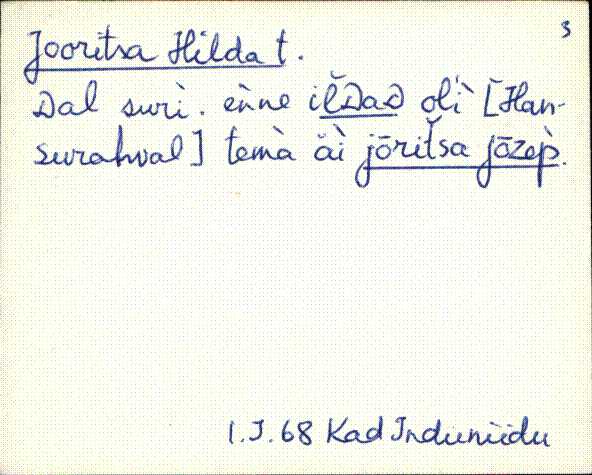 3
Jooritsa Hilda t.
Dal surì. enne ĭlDaD olì [Han-
surahval] temà äì jōriťsa jōzep̀.
1.I.68 Kad Induniidu